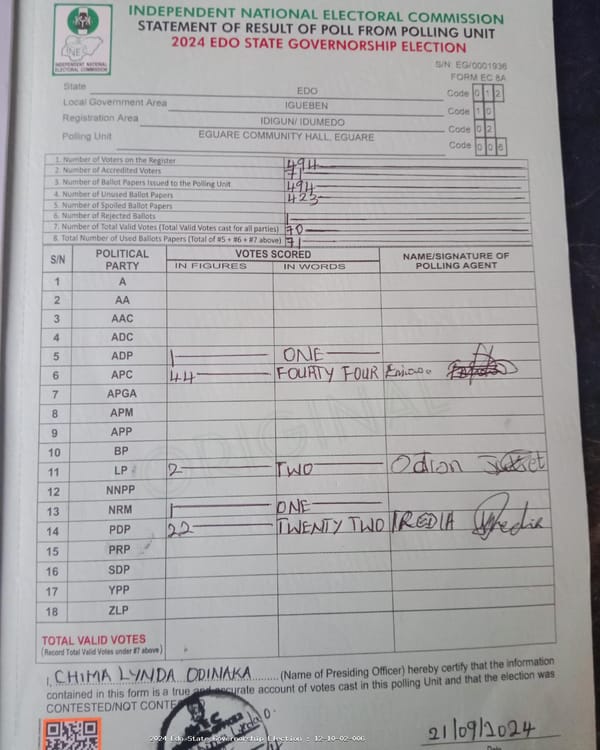 INDEPENDENT NATIONAL ELECTORAL COMMISSION
STATEMENT OF RESULT OF POLL FROM POLLING UNIT
2024 EDO STATE GOVERNORSHIP ELECTION
INEC
INDEPENDENT NATIONAL
ELECTORAL COMMISSION
S/N: EG/0001936
FORM EC 8A
State EDO Code 0 1 2
Local Government Area IGUEBEN Code 1 0
Registration Area IDIGUN/ IDUMEDO Code 0 2
Polling Unit EGUARE COMMUNITY HALL, EGUARE Code 0 0 6
1. Number of Voters on the Register 494
2. Number of Accredited Voters 71
3. Number of Ballot Papers Issued to the Polling Unit 494
4. Number of Unused Ballot Papers 423
5. Number of Spoiled Ballot Papers
6. Number of Rejected Ballots 1
7. Number of Total Valid Votes (Total Valid Votes cast for all parties) 70
8. Total Number of Used Ballots Papers (Total of #5 + #6 + #7 above) 71
S/N POLITICAL PARTY VOTES SCORED NAME/SIGNATURE OF POLLING AGENT
IN FIGURES IN WORDS
1 A
2 AA
3 AAC
4 ADC
5 ADP 1 ONE
6 APC 44 FOURTY FOUR
7 APGA
8 APM
9 APP
10 BP
11 LP 2 TWO Odion
12 NNPP
13 NRM 1 ONE
14 PDP 22 TWENTY TWO IREDIA Iredia
15 PRP
16 SDP
17 YPP
18 ZLP
ORIGINAL
TOTAL VALID VOTES
(Record Total Valid Votes under #7 above)
I, CHIMA LYNDA ODINAKA (Name of Presiding Officer) hereby certify that the information
contained in this form is a true and accurate account of votes cast in this polling Unit and that the election was
CONTESTED/NOT CONTE
21/09/2024
2024 Edo State Governorship Election : 12-10-02-006
Date